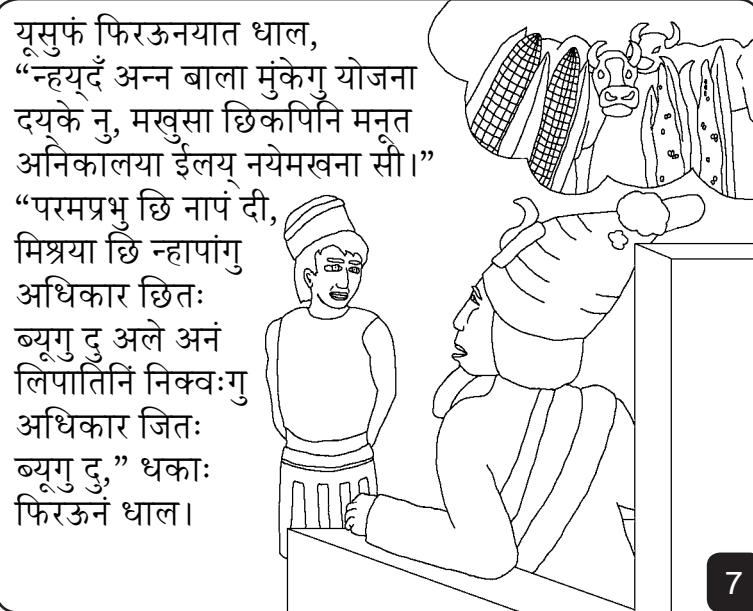 यूसुफं फिरऊनयात धाल,
“न्हय्‌दँ अन्न बाला मुंकेगु योजना
दय्‌के नु, मखुसा छिकपिनि मनूत
अनिकालया ईलय्‌ नयेमखना सी।”
“परमप्रभु छि नापं दी,
मिश्रया छि न्हापांगु
अधिकार छितः
ब्यूगु दु अले अनं
लिपातिनिं निक्वःगु
अधिकार जितः
ब्यूगु दु,” धकाः
फिरऊनं धाल।
7